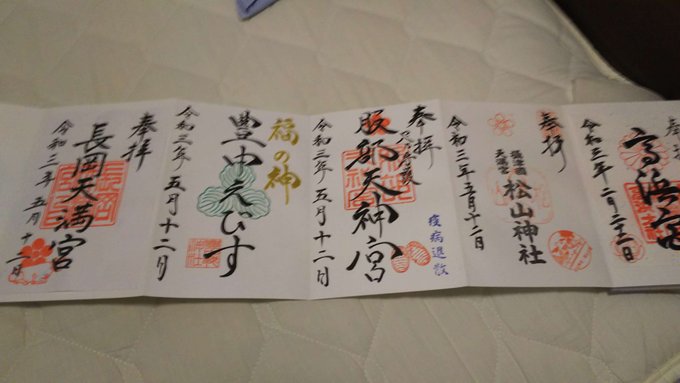 高浜宮
奉拝
攝津國
天満宮
松山神社
令和三年五月十二日
奉拝
疫病退散
服部天神宮
令和三年五月十二日
福の神
豊中えびす
令和三年五月十二日
奉拝
長岡天満宮
令和三年五月十二日